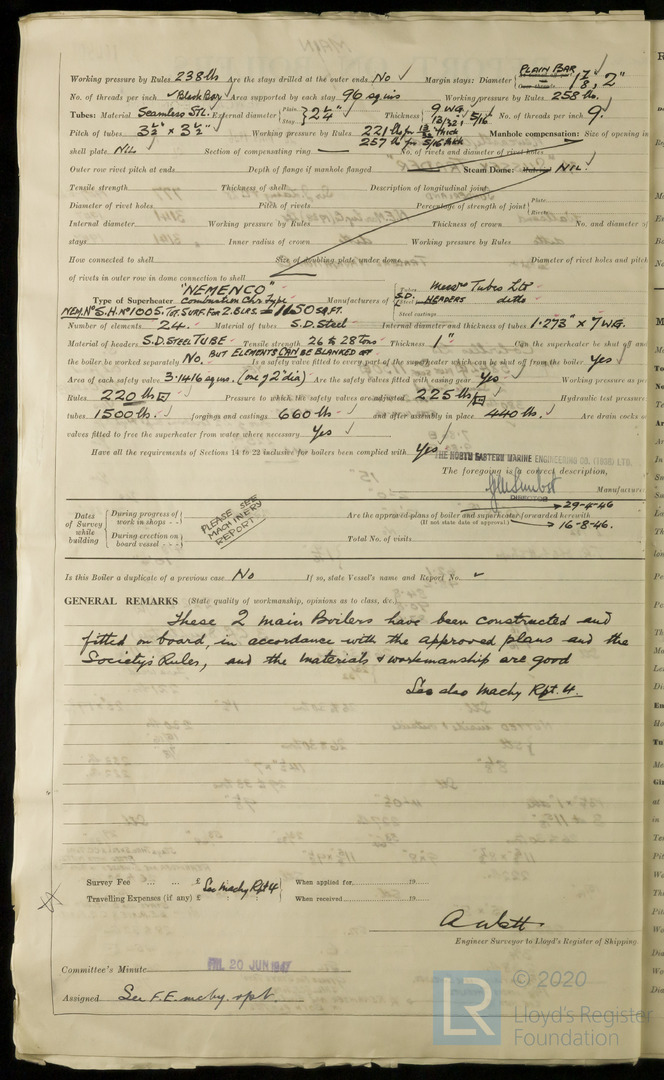 Working pressure by Rules 238 lbs Are the stays drilled at the outer ends No ✓ Margin stays: Diameter PLAIN BAR 1 7/8, 2"
No. of threads per inch Black Bay Area supported by each stay 96 sq.ins Working pressure by Rules 258 lbs.
Tubes: Material Seamless Stl. External diameter { Plain Stay } 2 1/4" Thickness 9 W.G. 13/32, 5/16 No. of threads per inch 9. ✓
Pitch of tubes 3 1/2" x 3 1/2" Working pressure by Rules 221 lbs for 13/32 thick Manhole compensation: Size of opening in
257 lbs for 5/16 thick
shell plate NIL Section of compensating ring — No. of rivets and diameter of rivet holes
Outer row rivet pitch at ends Depth of flange if manhole flanged Steam Dome: Material NIL.
Tensile strength Thickness of shell Description of longitudinal joint
Diameter of rivet holes Pitch of rivets Percentage of strength of joint { Plate Rivets
Internal diameter Working pressure by Rules Thickness of crown No. and diameter of
stays Inner radius of crown Working pressure by Rules
How connected to shell Size of doubling plate under dome Diameter of rivet holes and pitch
of rivets in outer row in dome connection to shell
"NEMENCO"
Type of Superheater Combination Chr Type Manufacturers of { Tubes Messrs Tubes Ltd
S.D. HEADERS ditto
NEM. No S.H. No 1005. TOT. SURF. FOR 2. BLRS = 1650 SQ. FT. Steel castings
Number of elements 24. Material of tubes S.D. Steel Internal diameter and thickness of tubes 1.273" x 7 W.G.
Material of headers S.D. STEEL TUBE Tensile strength 26 to 28 Tons Thickness 1" Can the superheater be shut off and
the boiler be worked separately No. BUT ELEMENTS CAN BE BLANKED OFF Is a safety valve fitted to every part of the superheater which can be shut off from the boiler. Yes ✓
Area of each safety valve 3.1416 sq ins. (one of 2" dia) Are the safety valves fitted with easing gear Yes Working pressure as per
Rules 220 lbs Pressure to which the safety valves are adjusted 225 lbs Hydraulic test pressure
tubes 1500 lbs. ✓ forgings and castings 660 lbs and after assembly in place 440 lbs. ✓ Are drain cocks or
valves fitted to free the superheater from water where necessary Yes ✓
Have all the requirements of Sections 14 to 22 inclusive for boilers been complied with Yes ✓ THE NORTH EASTERN MARINE ENGINEERING CO. (1938) LTD.
The foregoing is a correct description,
DIRECTOR Manufacturer
Dates of Survey while building { During progress of work in shops - - } PLEASE SEE MACHINERY REPORT. Are the approved plans of boiler and superheater forwarded herewith → 29-4-46
(If not state date of approval) → 16-8-46.
During erection on board vessel - - - Total No. of visits
Is this Boiler a duplicate of a previous case No If so, state Vessel's name and Report No. ✓
GENERAL REMARKS (State quality of workmanship, opinions as to class, &c.)
These 2 main Boilers have been constructed and
fitted on board, in accordance with the approved plans and the
Society's Rules, and the materials & workmanship are good
See also Machy Rpt. 4.
Survey Fee ... ... £ See Machy Rpt 4 When applied for 19
Travelling Expenses (if any) £ When received 19
Engineer Surveyor to Lloyd's Register of Shipping
Committee's Minute FRI. 20 JUN 1947
Assigned See F.E. mchy. rpt.
© 2020
LR Lloyd's Register
Foundation